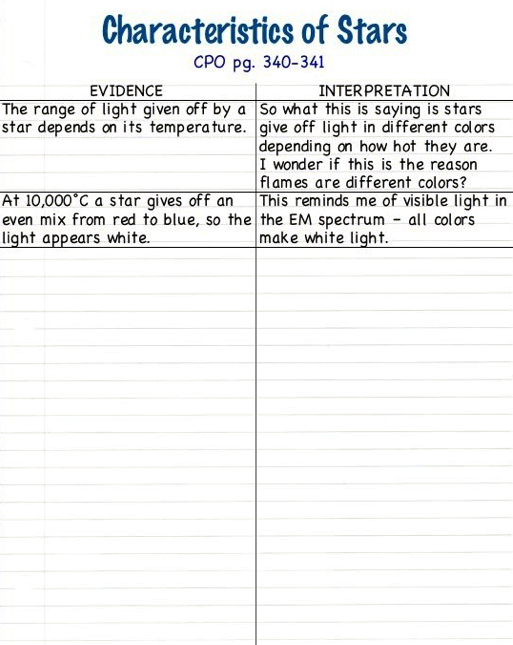 Characteristics of Stars
CPO pg. 340-341
EVIDENCE
The range of light given off by a
star depends on its temperature.
At 10,000°C a star gives off an
even mix from red to blue, so the
light appears white.
INTERPRETATION
So what this is saying is stars
give off light in different colors
depending on how hot they are.
I wonder if this is the reason
flames are different colors?
This reminds me of visible light in
the EM spectrum - all colors
make white light.